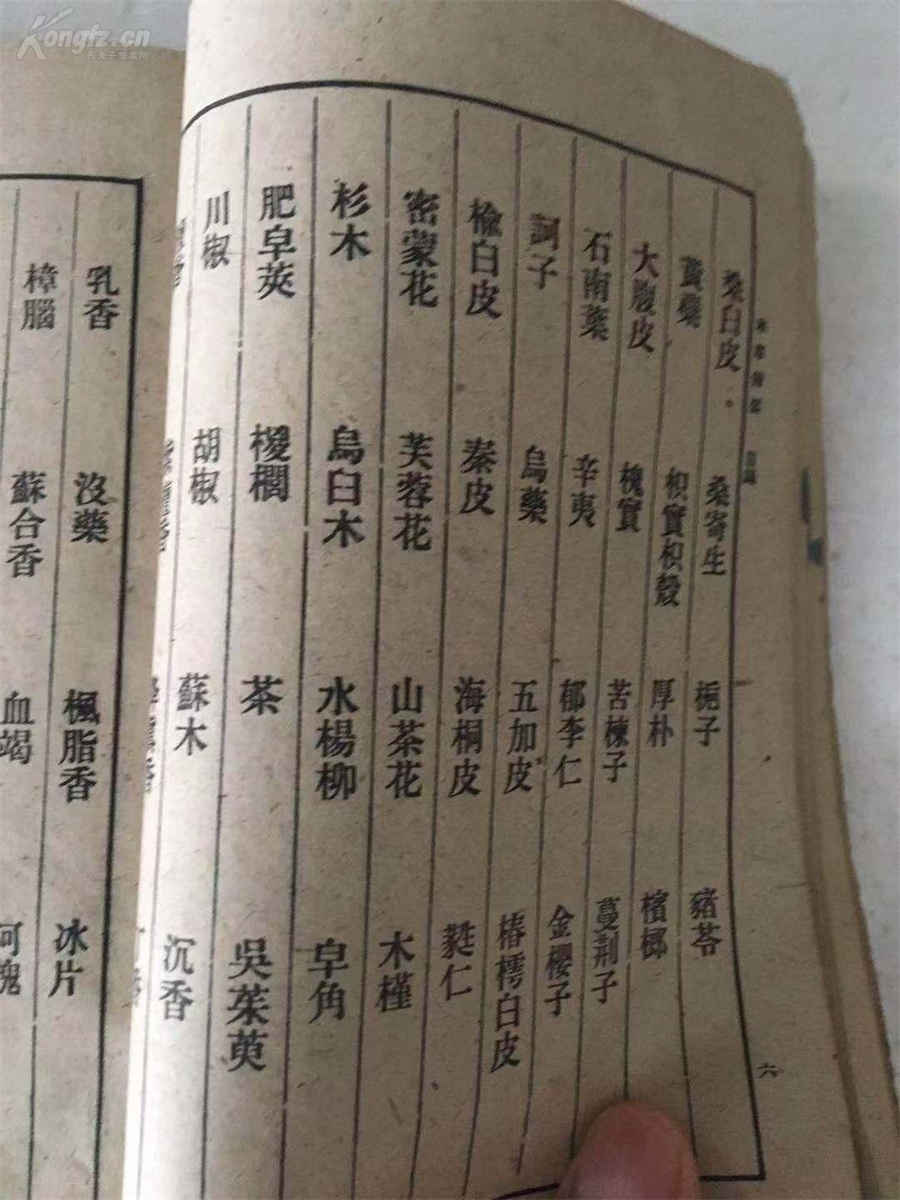 Kongfz.cn
桑白皮 桑寄生 梔子 豬苓
黃蘗 枳實枳殼 厚朴 檳榔
大腹皮 槐實 苦楝子 蔓荆子
石南葉 辛夷 郁李仁 金櫻子
訶子 烏藥 五加皮 椿樗白皮
榆白皮 秦皮 海桐皮 蕤仁
密蒙花 芙蓉花 山茶花 木槿
杉木 烏臼木 水楊柳 皁角
肥皁莢 椶櫚 茶 吳茱萸
川椒 胡椒 蘇木 沉香
六
乳香 沒藥 楓脂香 冰片
樟腦 蘇合香 血竭